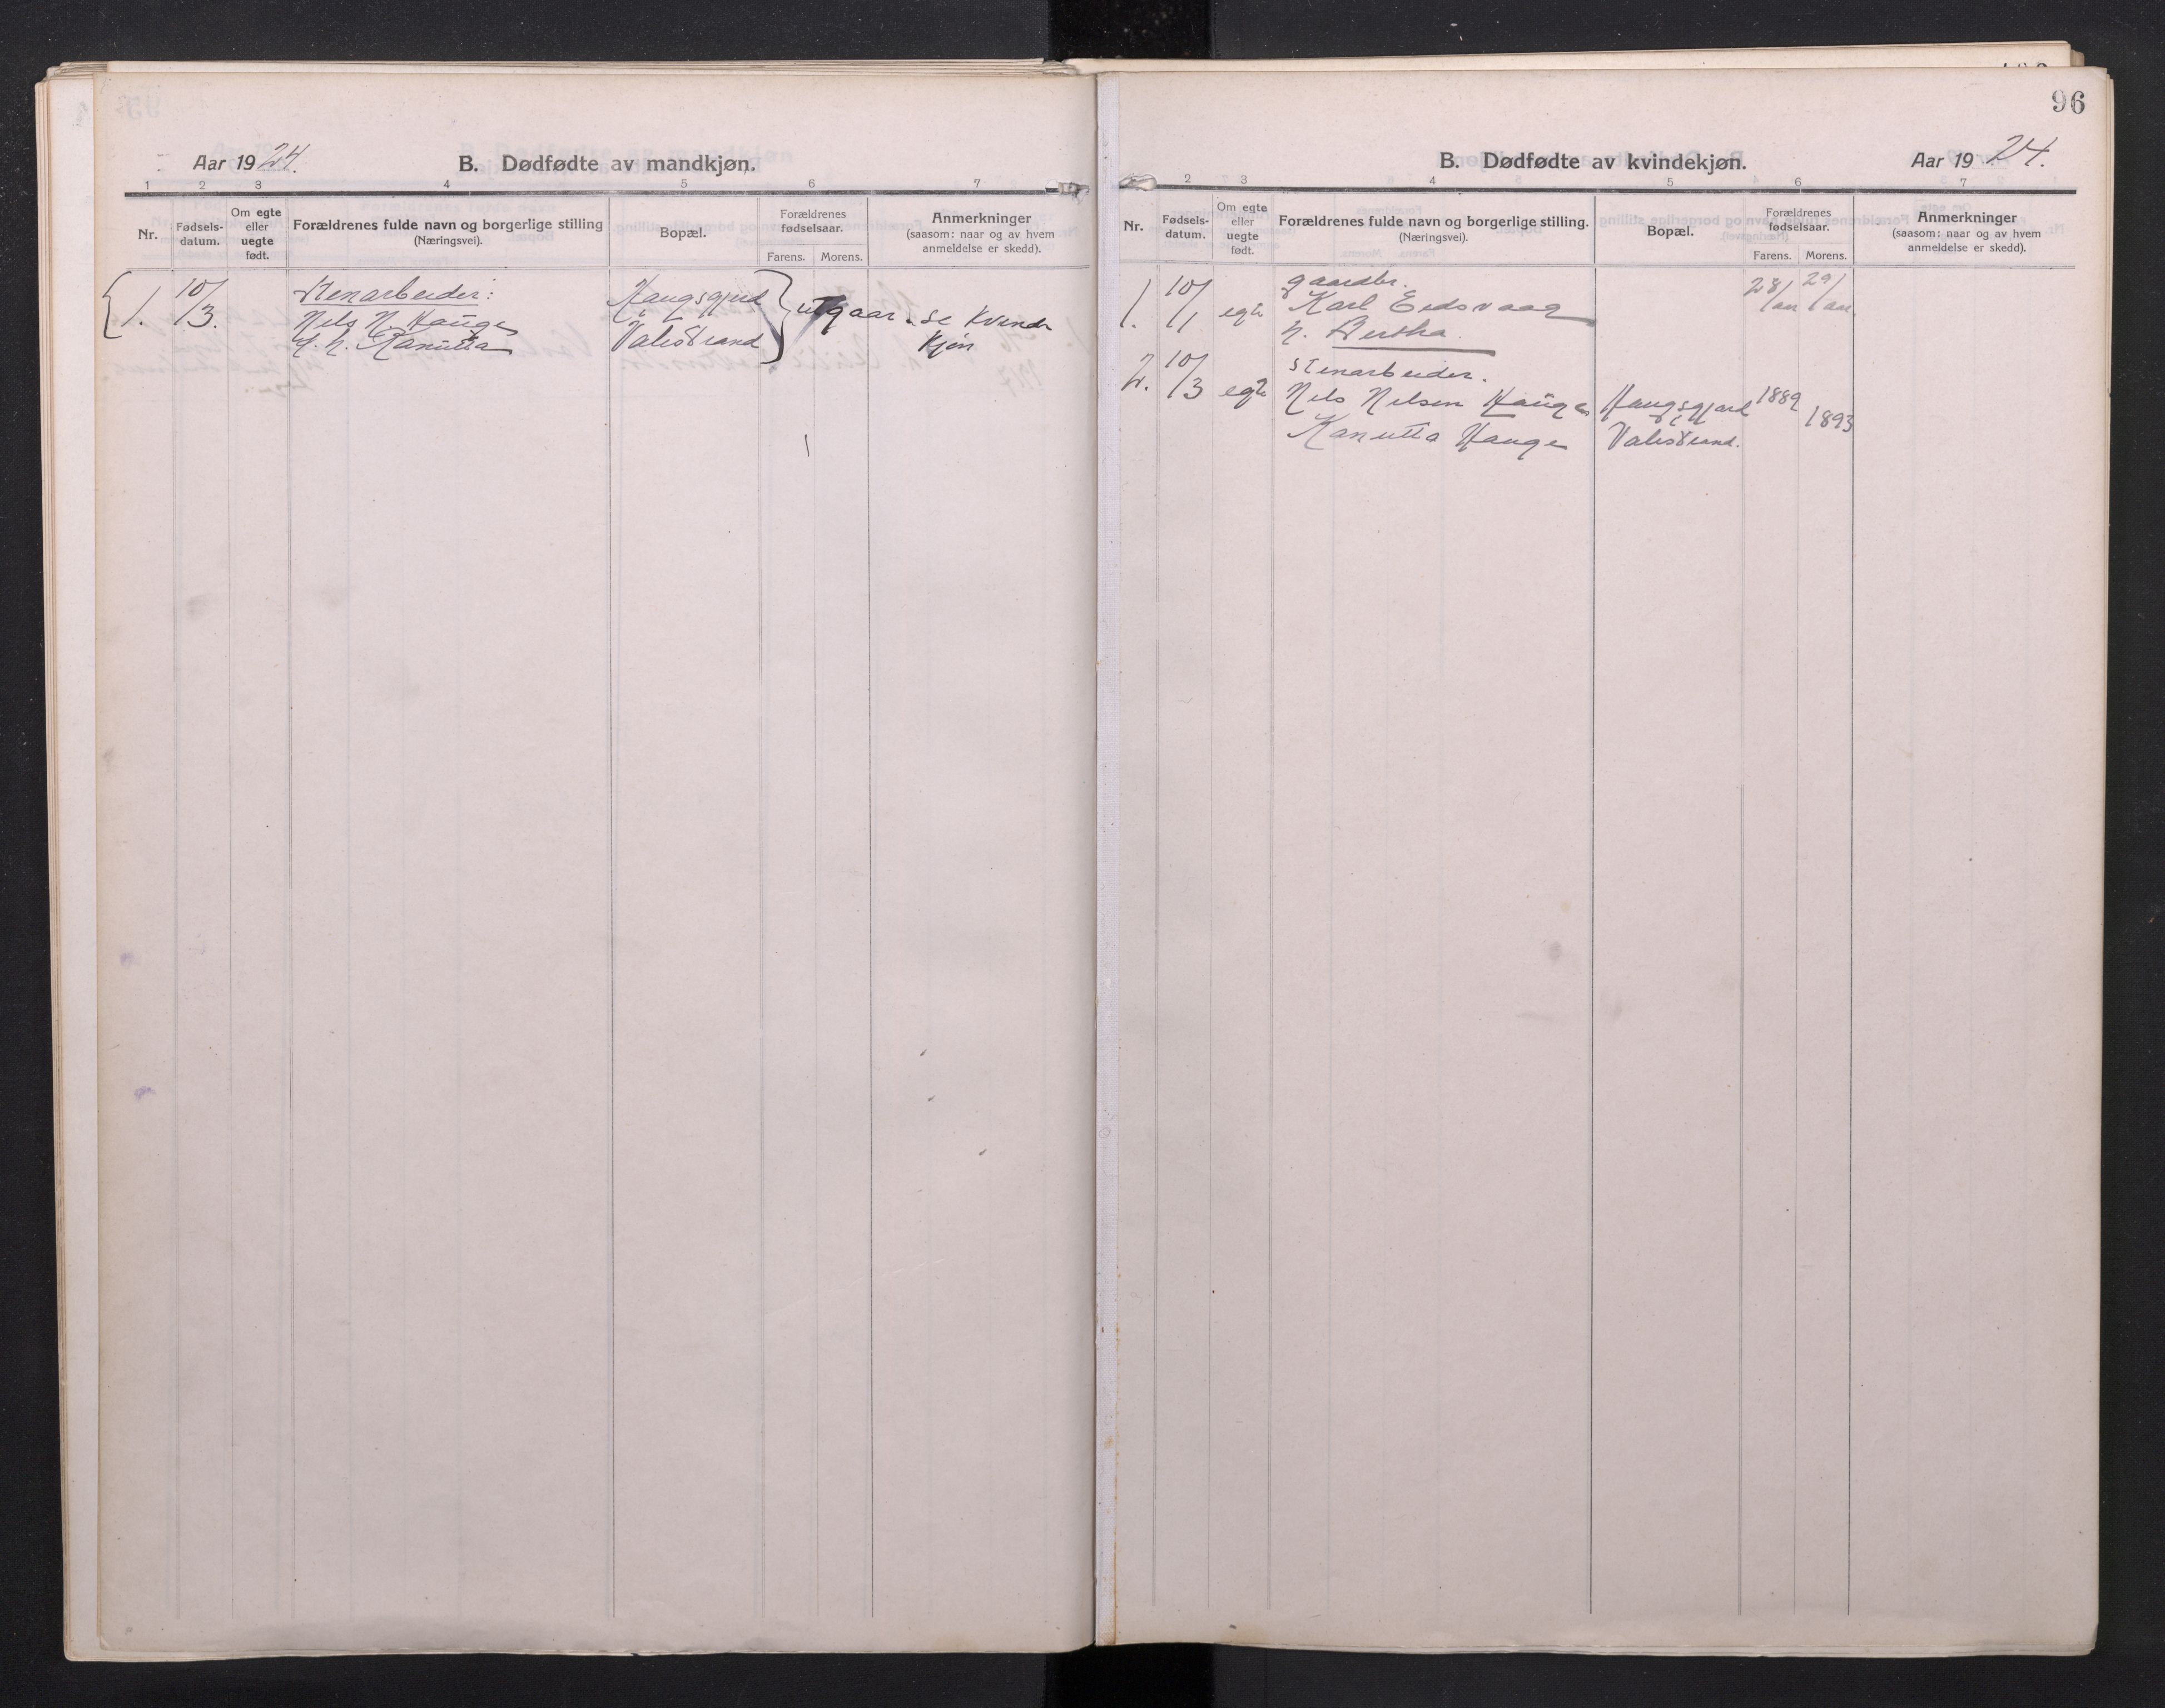 Aar 1924. B. Dødfødte av mandkjøn.
1 2 3 4 5 6 7
Nr. Fødsels-datum. Om egte eller uegte født. Forældrenes fulde navn og borgerlige stilling (Næringsvei). Bopæl. Forældrenes fødselsaar. Farens. Morens. Anmerkninger (saasom: naar og av hvem anmeldelse er skedd).
1. 10/3. Stenarbeider: Haugsgjerd utgaar. se Kvinde
Nils N. Hauge Valestrand Kjøn
h. h. Kanutta
96
B. Dødfødte av kvindekjøn. Aar 1924.
2 3 4 5 6 7
Nr. Fødsels-datum. Om egte eller uegte født. Forældrenes fulde navn og borgerlige stilling. (Næringsvei). Bopæl. Forældrenes fødselsaar. Farens. Morens. Anmerkninger (saasom: naar og av hvem anmeldelse er skedd).
1. 10/1 egte gaardbr. 28/aar 29/aar
Karl Eidsvaag
h. Bertha.
2. 10/3 egte stenarbeider.
Nils Nilsen Hauge Haugsgjerd 1889 1893
Kanutta Hauge Valestrand.